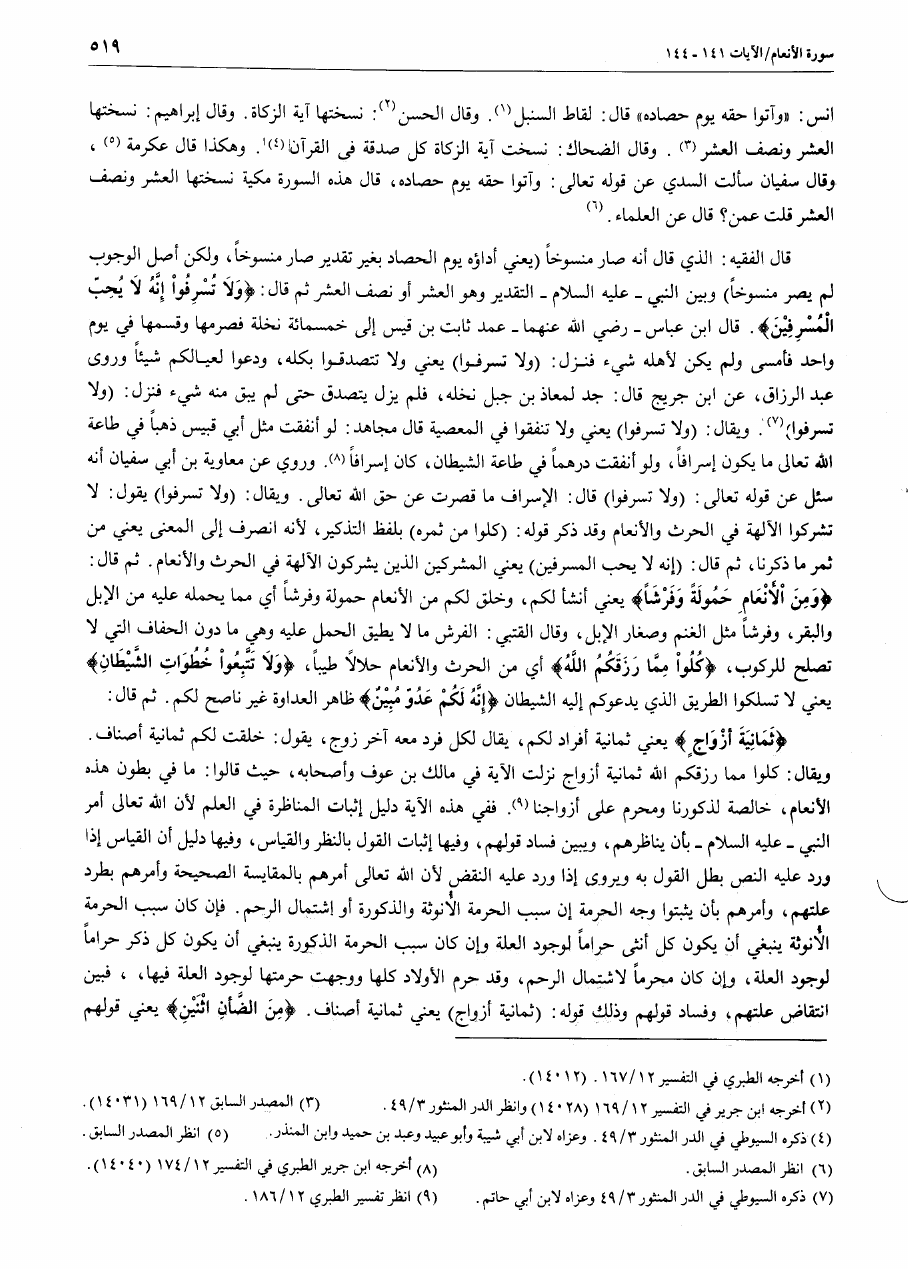 سورة الأنعام/الآيات ١٤١ - ١٤٤
٥١٩
انس: «وآتوا حقه يوم حصاده» قال: لقاط السنبل(١). وقال الحسن(٢): نسختها آية الزكاة. وقال إبراهيم: نسختها
العشر ونصف العشر(٣) . وقال الضحاك: نسخت آية الزكاة كل صدقة في القرآن(٤)'. وهكذا قال عكرمة(٥) ،
وقال سفيان سألت السدي عن قوله تعالى: وآتوا حقه يوم حصاده، قال هذه السورة مكية نسختها العشر ونصف
العشر قلت عمن؟ قال عن العلماء.(٦)
قال الفقيه: الذي قال أنه صار منسوخاً (يعني أداؤه يوم الحصاد بغير تقدير صار منسوخاً، ولكن أصل الوجوب
لم يصر منسوخاً) وبين النبي - عليه السلام - التقدير وهو العشر أو نصف العشر ثم قال: ﴿وَلَا تُسْرِفُوا إِنَّهُ لَا يُحِبُّ
الْمُسْرِفِيْنَ﴾. قال ابن عباس - رضي الله عنهما - عمد ثابت بن قيس إلى خمسمائة نخلة فصرمها وقسمها في يوم
واحد فأمسى ولم يكن لأهله شيء فنزل: (ولا تسرفوا) يعني ولا تتصدقوا بكله، ودعوا لعيالكم شيئاً وروى
عبد الرزاق، عن ابن جريج قال: جد لمعاذ بن جبل نخله، فلم يزل يتصدق حتى لم يبق منه شيء فنزل: (ولا
تسرفوا)(٧). ويقال: (ولا تسرفوا) يعني ولا تنفقوا في المعصية قال مجاهد: لو أنفقت مثل أبي قبيس ذهباً في طاعة
الله تعالى ما يكون إسرافاً، ولو أنفقت درهماً في طاعة الشيطان، كان إسرافاً(٨). وروي عن معاوية بن أبي سفيان أنه
سئل عن قوله تعالى: (ولا تسرفوا) قال: الإسراف ما قصرت عن حق الله تعالى. ويقال: (ولا تسرفوا) يقول: لا
تشركوا الآلهة في الحرث والأنعام وقد ذكر قوله: (كلوا من ثمره) بلفظ التذكير، لأنه انصرف إلى المعنى يعني من
ثمر ما ذكرنا، ثم قال: (إنه لا يحب المسرفين) يعني المشركين الذين يشركون الآلهة في الحرث والأنعام. ثم قال:
﴿وَمِنَ الْأَنْعَامِ حَمُولَةً وَفَرْشاً﴾ يعني أنشأ لكم، وخلق لكم من الأنعام حمولة وفرشاً أي مما يحمله عليه من الإبل
والبقر، وفرشاً مثل الغنم وصغار الإبل، وقال القتبي: الفرش ما لا يطيق الحمل عليه وهي ما دون الحفاف التي لا
تصلح للركوب، ﴿كُلُوا مِمَّا رَزَقَكُمُ اللَّهُ﴾ أي من الحرث والأنعام حلالاً طيباً، ﴿وَلَا تَتَّبِعُوا خُطُوَاتِ الشَّيْطَانِ﴾
يعني لا تسلكوا الطريق الذي يدعوكم إليه الشيطان ﴿إِنَّهُ لَكُمْ عَدُوٌّ مُبِيْنٌ﴾ ظاهر العداوة غير ناصح لكم. ثم قال:
﴿ثَمَانِيَةَ أَزْوَاجٍ﴾ يعني ثمانية أفراد لكم، يقال لكل فرد معه آخر زوج، يقول: خلقت لكم ثمانية أصناف.
ويقال: كلوا مما رزقكم الله ثمانية أزواج نزلت الآية في مالك بن عوف وأصحابه، حيث قالوا: ما في بطون هذه
الأنعام، خالصة لذكورنا ومحرم على أزواجنا(٩). ففي هذه الآية دليل إثبات المناظرة في العلم لأن الله تعالى أمر
النبي - عليه السلام - بأن يناظرهم، ويبين فساد قولهم، وفيها إثبات القول بالنظر والقياس، وفيها دليل أن القياس إذا
ورد عليه النص بطل القول به ويروى إذا ورد عليه النقض لأن الله تعالى أمرهم بالمقايسة الصحيحة وأمرهم بطرد
علتهم، وأمرهم بأن يثبتوا وجه الحرمة إن سبب الحرمة الأنوثة والذكورة أو إشتمال الرحم. فإن كان سبب الحرمة
الأنوثة ينبغي أن يكون كل أنثى حراماً لوجود العلة وإن كان سبب الحرمة الذكورة ينبغي أن يكون كل ذكر حراماً
لوجود العلة، وإن كان محرماً لاشتمال الرحم، وقد حرم الأولاد كلها ووجهت حرمتها لوجود العلة فيها، ، فبين
انتقاض علتهم، وفساد قولهم وذلك قوله: (ثمانية أزواج) يعني ثمانية أصناف. ﴿مِنَ الضَّأنِ اثْنَيْنِ﴾ يعني قولهم
(١) أخرجه الطبري في التفسير ١٦٧/١٢. (١٤٠١٢).
(٢) أخرجه ابن جرير في التفسير ١٦٩/١٢ (١٤٠٢٨) وانظر الدر المنثور ٤٩/٣. (٣) المصدر السابق ١٦٩/١٢ (١٤٠٣١).
(٤) ذكره السيوطي في الدر المنثور ٤٩/٣. وعزاه لابن أبي شيبة وأبو عبيد وعبد بن حميد وابن المنذر. (٥) انظر المصدر السابق.
(٦) انظر المصدر السابق. (٨) أخرجه ابن جرير الطبري في التفسير ١٧٤/١٢ (١٤٠٤٠).
(٧) ذكره السيوطي في الدر المنثور ٤٩/٣ وعزاه لابن أبي حاتم. (٩) انظر تفسير الطبري ١٨٦/١٢.